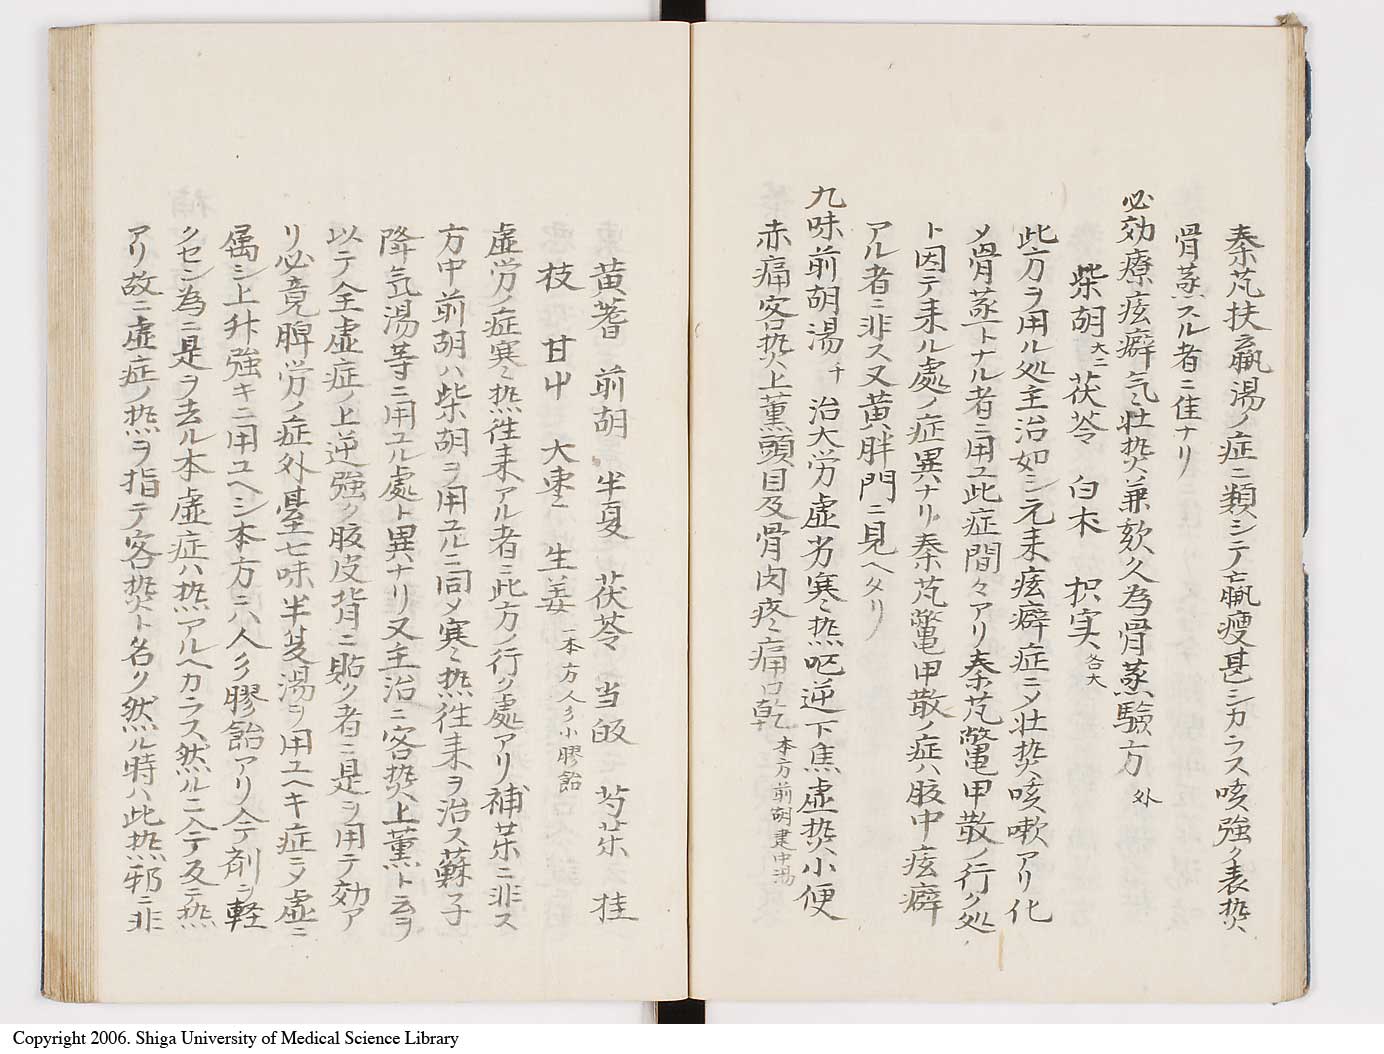 秦芃扶羸湯ノ症ニ類シテ羸痩甚シカラス咳強ク表熱
骨蒸スル者ニ佳ナリ
必効療痃癖気壮熱兼欬久為骨蒸驗方 外
柴胡大二 茯苓 白朮 枳実各大
此方ヲ用ル処主治如シ元来痃癖症ニメ壮熱咳嗽アリ化
メ骨蒸トナル者ニ用ユ此症間々アリ秦芃鼈甲散ノ行ク処
ト因テ来ル處ノ症異ナリ秦芃鼈甲散ノ症ハ肢中痃癖
アル者ニ非ス又黄胖門ニ見ヘタリ
九味前胡湯 千 治大労虚劣寒熱呕逆下焦虚熱小便
赤痛客熱上薫頭目及骨肉疼痛口乾 本方前胡建中湯
黄蓍 前胡 半夏 茯苓 当皈 芍薬 桂
枝 甘中 大棗 生姜 一本方人参小膠飴
虚労ノ症寒熱徃来アル者ニ此方ノ行ク處アリ補薬ニ非ス
方中前胡ハ柴胡ヲ用ユルニ同メ寒熱徃来ヲ治ス蘇子
降気湯等ニ用ユル處ト異ナリ又主治ニ客熱上薫ト云ヲ
以テ全虚症ノ上逆強ク肢皮背ニ貼ク者ニ是ヲ用テ効ア
リ必竟脾労ノ症外臺七味半夏湯ヲ用ユヘキ症ニメ虚ニ
属シ上升強キニ用ユヘシ本方ニハ人参膠飴アリ今剤ヲ軽
クセン為ニ是ヲ去ル本虚症ハ熱アルヘカラス然ルニ今テ及テ熱
アリ故ニ虚症ノ熱ヲ指テ客熱ト名ク然ル時ハ此熱邪ニ非
Copyright 2006. Shiga University of Medical Science Library